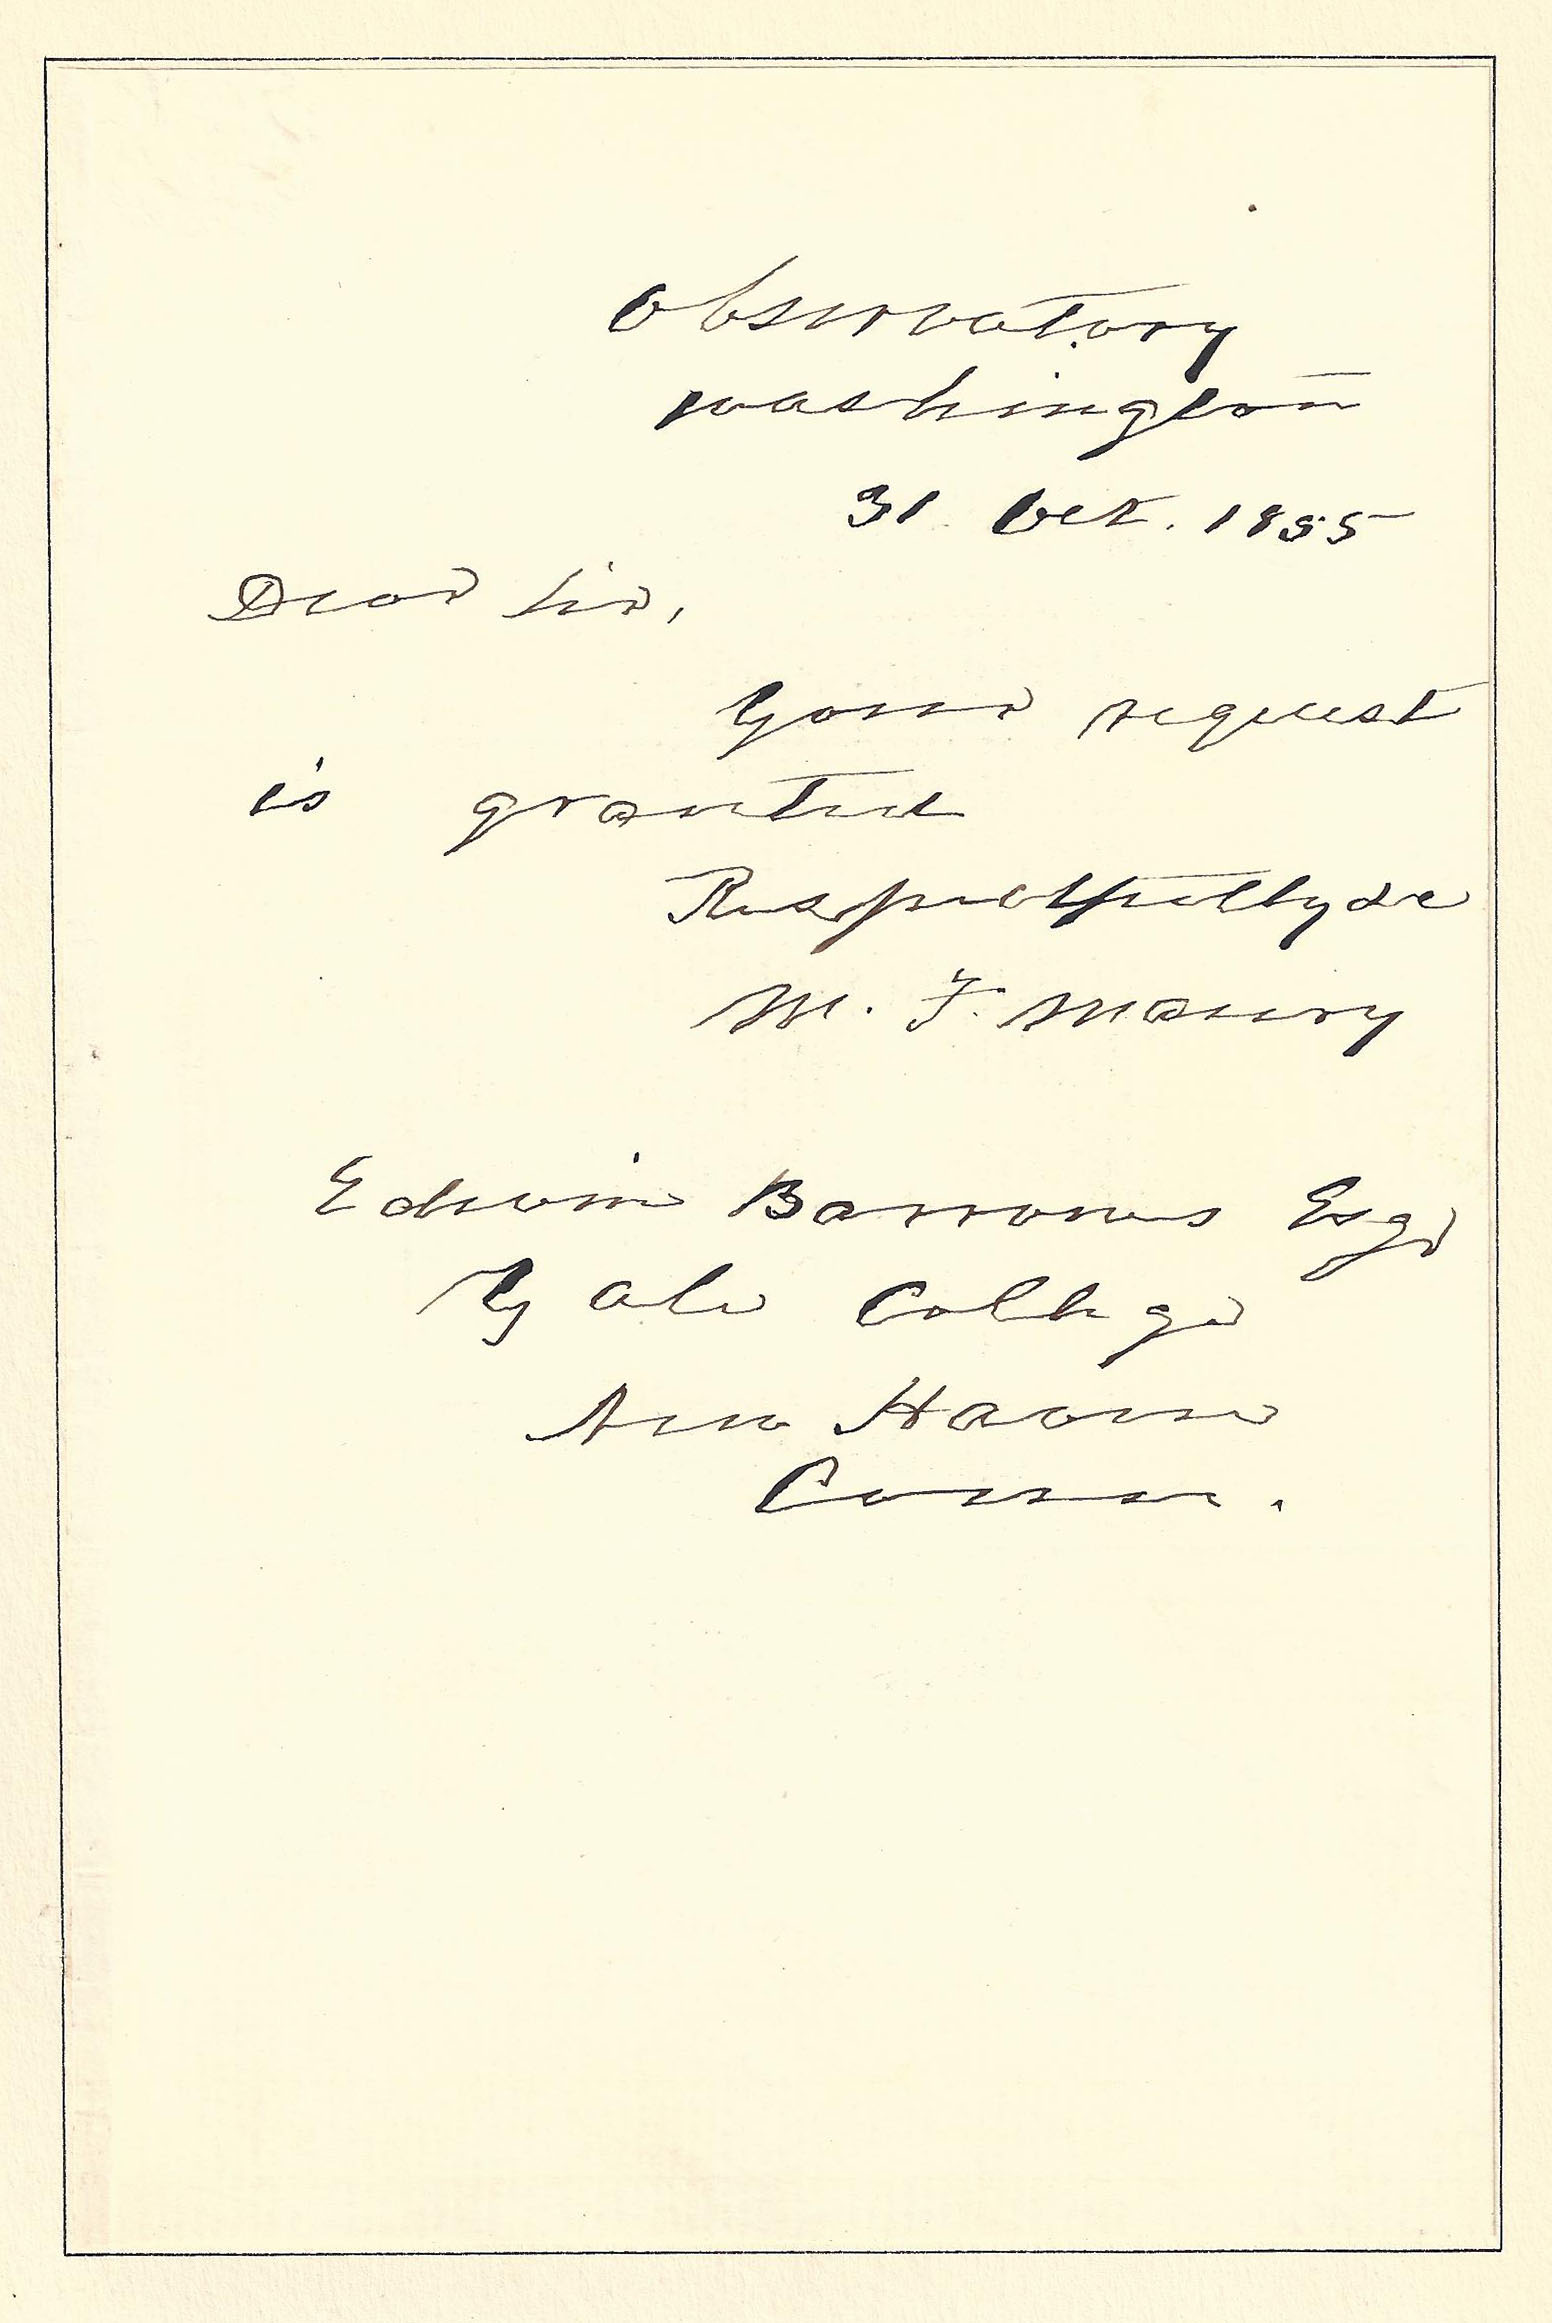 Observatory
Washington
31 Oct. 1855
Dear Sir,
Your request
is granted
Respectfully &c
M. F. Maury
Edwin Barrows Esqr
Yale College
New Haven
Conn.